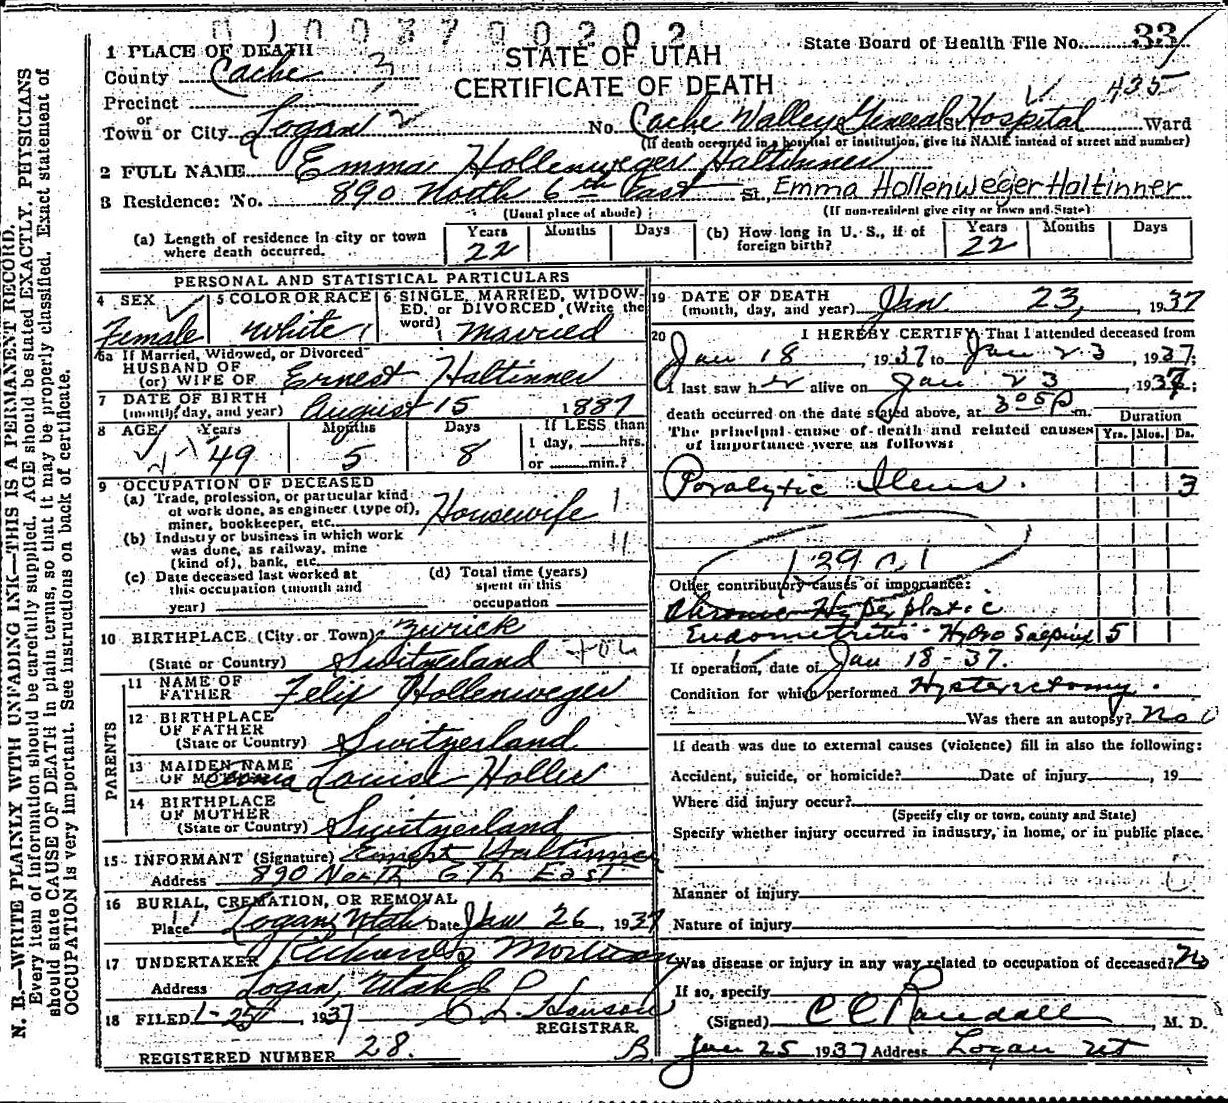 0 1 0 0 3 7 0 0 2 0 2
State Board of Health File No. 33
STATE OF UTAH
CERTIFICATE OF DEATH
435
1 PLACE OF DEATH
County Cache 3
Precinct
or
Town or City Logan 2 No. Cache Valley General Hospital St. Ward
(If death occurred in a hospital or institution, give its NAME instead of street and number)
2 FULL NAME Emma Hollenweger Haltinner
3 Residence: No. 890 North 6th East St., Emma Hollenweger Haltinner
(Usual place of abode) (If non-resident give city or town and State)
(a) Length of residence in city or town where death occurred. Years 22 Months Days
(b) How long in U. S., if of foreign birth? Years 22 Months Days
PERSONAL AND STATISTICAL PARTICULARS
4 SEX Female
5 COLOR OR RACE white
6 SINGLE, MARRIED, WIDOWED, or DIVORCED (Write the word) Married
6a If Married, Widowed, or Divorced
HUSBAND OF
(or) WIFE OF Ernest Haltinner
7 DATE OF BIRTH
(month, day, and year) August 15 1887
8 AGE Years 49 Months 5 Days 8 If LESS than
1 day, hrs.
or min.?
9 OCCUPATION OF DECEASED
(a) Trade, profession, or particular kind
of work done, as engineer (type of),
miner, bookkeeper, etc. Housewife
(b) Industry or business in which work
was done, as railway, mine
(kind of), bank, etc. 11
(c) Date deceased last worked at
this occupation (month and
year)
(d) Total time (years)
spent in this
occupation
10 BIRTHPLACE (City or Town) Zurick
(State or Country) Switzerland
PARENTS
11 NAME OF
FATHER Felix Hollenweger
12 BIRTHPLACE
OF FATHER
(State or Country) Switzerland
13 MAIDEN NAME
OF MOTHER Louise Holler
14 BIRTHPLACE
OF MOTHER
(State or Country) Switzerland
15 INFORMANT (Signature) Ernest Haltinner
Address 890 North 6th East
16 BURIAL, CREMATION, OR REMOVAL
Place Logan, Utah Date Jan 26 1937
17 UNDERTAKER Richards Mortuary
Address Logan, Utah
18 FILED 1-25 1937 C L Hanson
REGISTRAR.
REGISTERED NUMBER 28. B
19 DATE OF DEATH
(month, day, and year) Jan 23, 1937
20 I HEREBY CERTIFY, That I attended deceased from
Jan 18, 1937 to Jan 23, 1937;
I last saw her alive on Jan 23, 1937;
death occurred on the date stated above, at 3:05 P m.
Duration
The principal cause of death and related causes
of importance were as follows:
Yrs. Mos. Ds.
Paralytic Ileus. 3
139 c 1
Other contributory causes of importance:
Chronic Hyperplastic
Endometritis - Hydro Salpinx 5
If operation, date of Jan 18-37.
Condition for which performed Hysterectomy.
Was there an autopsy? No
If death was due to external causes (violence) fill in also the following:
Accident, suicide, or homicide? Date of injury , 19
Where did injury occur?
(Specify city or town, county and State)
Specify whether injury occurred in industry, in home, or in public place.
Manner of injury
Nature of injury
Was disease or injury in any way related to occupation of deceased? No
If so, specify
(Signed) C C Randall, M. D.
Jan 25 1937 Address Logan Ut
N. B.—WRITE PLAINLY WITH UNFADING INK—THIS IS A PERMANENT RECORD.
Every item of information should be carefully supplied. AGE should be stated EXACTLY. PHYSICIANS
should state CAUSE OF DEATH in plain terms, so that it may be properly classified. Exact statement of
OCCUPATION is very important. See instructions on back of certificate.